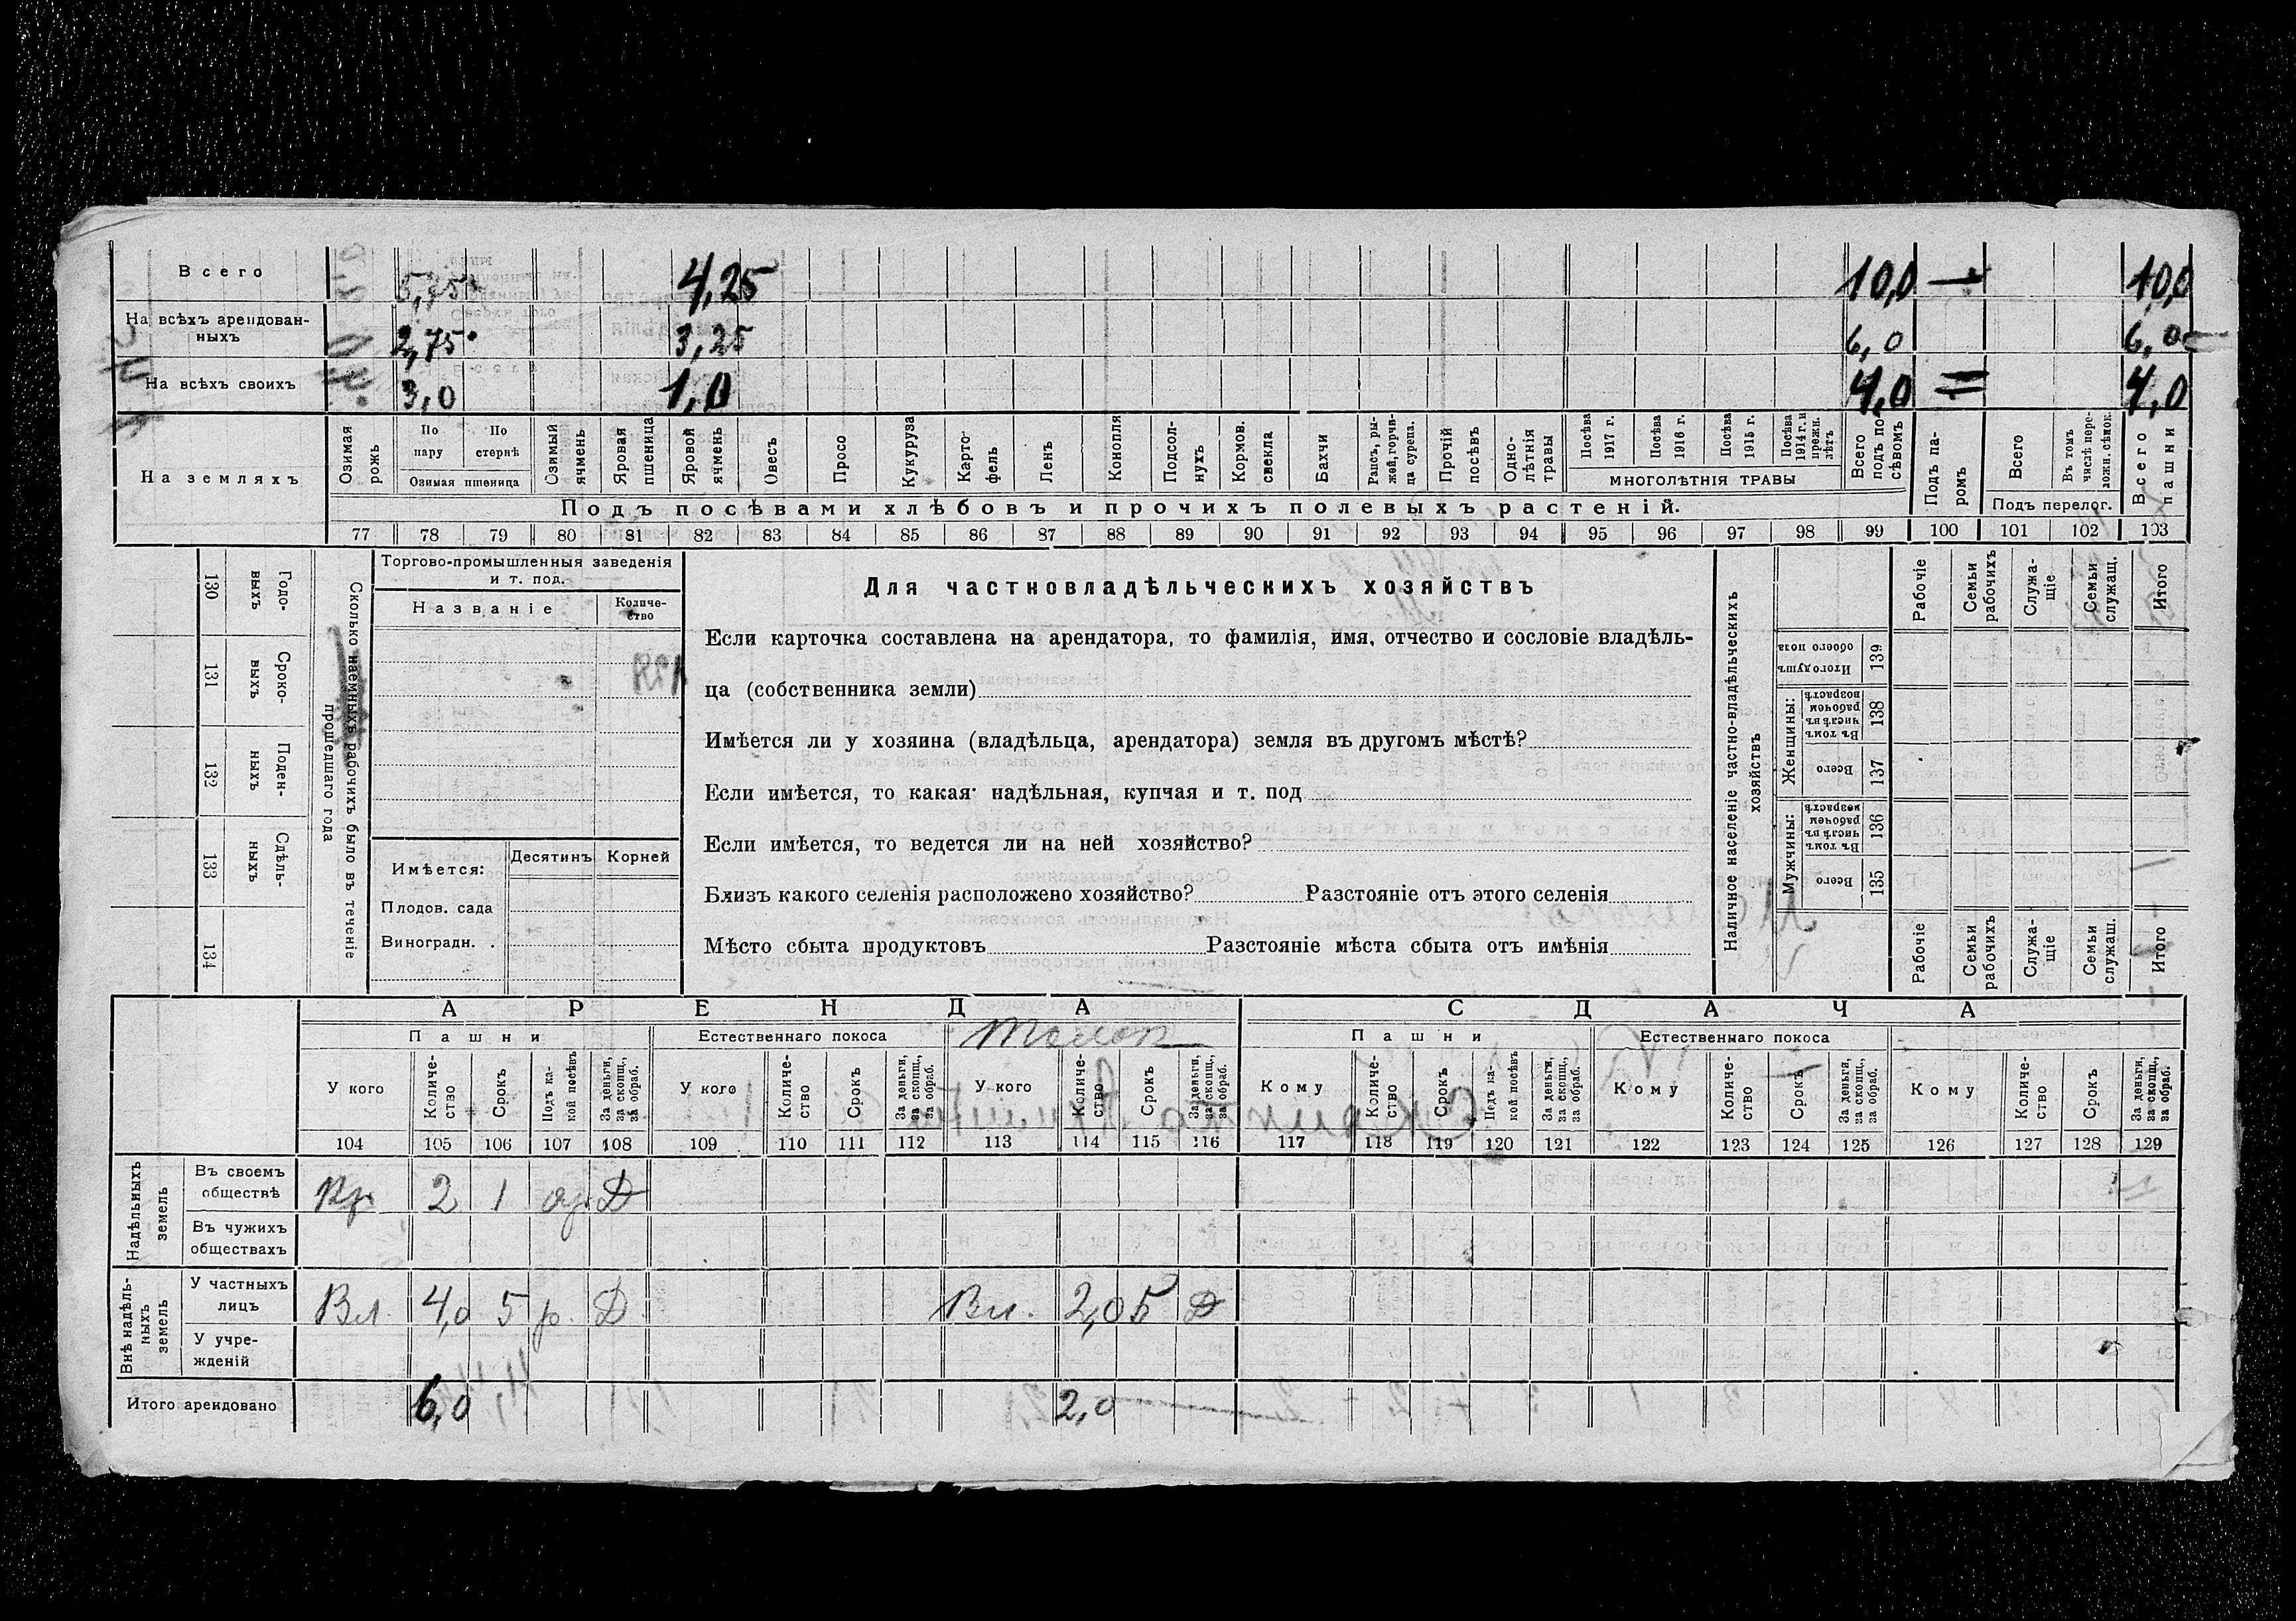 Всего 5,75 4,25 10,0 — 10,0
На всѣхъ арендован-
ныхъ 2,75 3,25 6,0 6,0
На всѣхъ своихъ 3,0 1,0 4,0 = 4,0
На земляхъ
Озимая рожь
По пару
По стернѣ
Озимая пшеница
Озимый ячмень
Яровая пшеница
Яровой ячмень
Овесъ
Просо
Кукуруза
Карто-
фель
Ленъ
Конопля
Подсол-
нухъ
Кормов. свекла
Бахчи
Рапсъ, ры-
жей, горчи-
ца сурепа.
Прочій посѣвъ
Одно-
лѣтнія травы
Посѣва 1917 г.
Посѣва 1916 г.
Посѣва 1915 г.
Посѣва 1914 г. и прежн. лѣтъ
МНОГОЛѢТНІЯ ТРАВЫ
Всего подъ по-
сѣвомъ
Подъ па-
ромъ
Всего
Въ томъ числѣ пере-
ложн. сѣнок.
Подъ перелог.
Всего пашни
Подъ посѣвами хлѣбовъ и прочихъ полевыхъ растеній.
77 78 79 80 81 82 83 84 85 86 87 88 89 90 91 92 93 94 95 96 97 98 99 100 101 102 103
Сколько наемныхъ рабочихъ было въ теченіе
прошедшаго года
Годо-
выхъ
130
Сроко-
выхъ
131
Поден-
ныхъ
132
Сдѣль-
ныхъ
133
134
Торгово-промышленныя заведенія
и т. под.
Названіе
Количе-
ство
Имѣется: Десятинъ Корней
Плодов. сада
Виноградн. .
Для частновладѣльческихъ хозяйствъ
Если карточка составлена на арендатора, то фамилія, имя, отчество и сословіе владѣль-
ца (собственника земли)
Имѣется ли у хозяина (владѣльца, арендатора) земля въ другомъ мѣстѣ?
Если имѣется, то какая: надѣльная, купчая и т. под
Если имѣется, то ведется ли на ней хозяйство?
Близъ какого селенія расположено хозяйство? Разстояніе отъ этого селенія
Мѣсто сбыта продуктовъ Разстояніе мѣста сбыта отъ имѣнія
Наличное населеніе частно-владѣльческихъ
хозяйствъ
Рабочіе
Семьи рабочихъ
Служа-
щіе
Семьи служащ.
Итого
Итого душъ обоего пола
139
Женщины:
Въ томъ числѣ въ рабочемъ возрастѣ
138
Всего
137
Мужчины:
Въ томъ числѣ въ рабочем возрастѣ
136
Всего
135
Рабочіе
Семьи рабочихъ
Служа-
щіе
Семьи служащ.
Итого
АРЕНДА СДАЧА
Пашни Естественнаго покоса Толок Пашни Естественнаго покоса
У кого
Количе-
ство
Срокъ
Подъ ка-
кой посѣвъ
За деньги, за скопщ., за обраб.
У кого
Количе-
ство
Срокъ
За деньги, за скопщ., за обраб.
У кого
Количе-
ство
Срокъ
За деньги, за скопщ., за обраб.
Кому
Количе-
ство
Срокъ
Подъ ка-
кой посѣвъ
За деньги, за скопщ., за обраб.
Кому
Количе-
ство
Срокъ
За деньги, за скопщ., за обраб.
Кому
Количе-
ство
Срокъ
За деньги, за скопщ., за обраб.
104 105 106 107 108 109 110 111 112 113 114 115 116 117 118 119 120 121 122 123 124 125 126 127 128 129
Надѣльныхъ земель
Въ своемъ
обществѣ Кр. 2 1 Д
Въ чужихъ
обществахъ
Внѣ надѣль-
ныхъ земель
У частныхъ
лицъ Вл. 4,0 5 р. Д Вл. 2,0 5 Д
У учре-
жденій
Итого арендовано 6,0 2,0